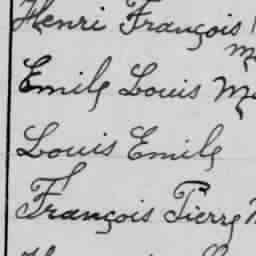 Henri François
Emile Louis
Louis Emile
François Pierre